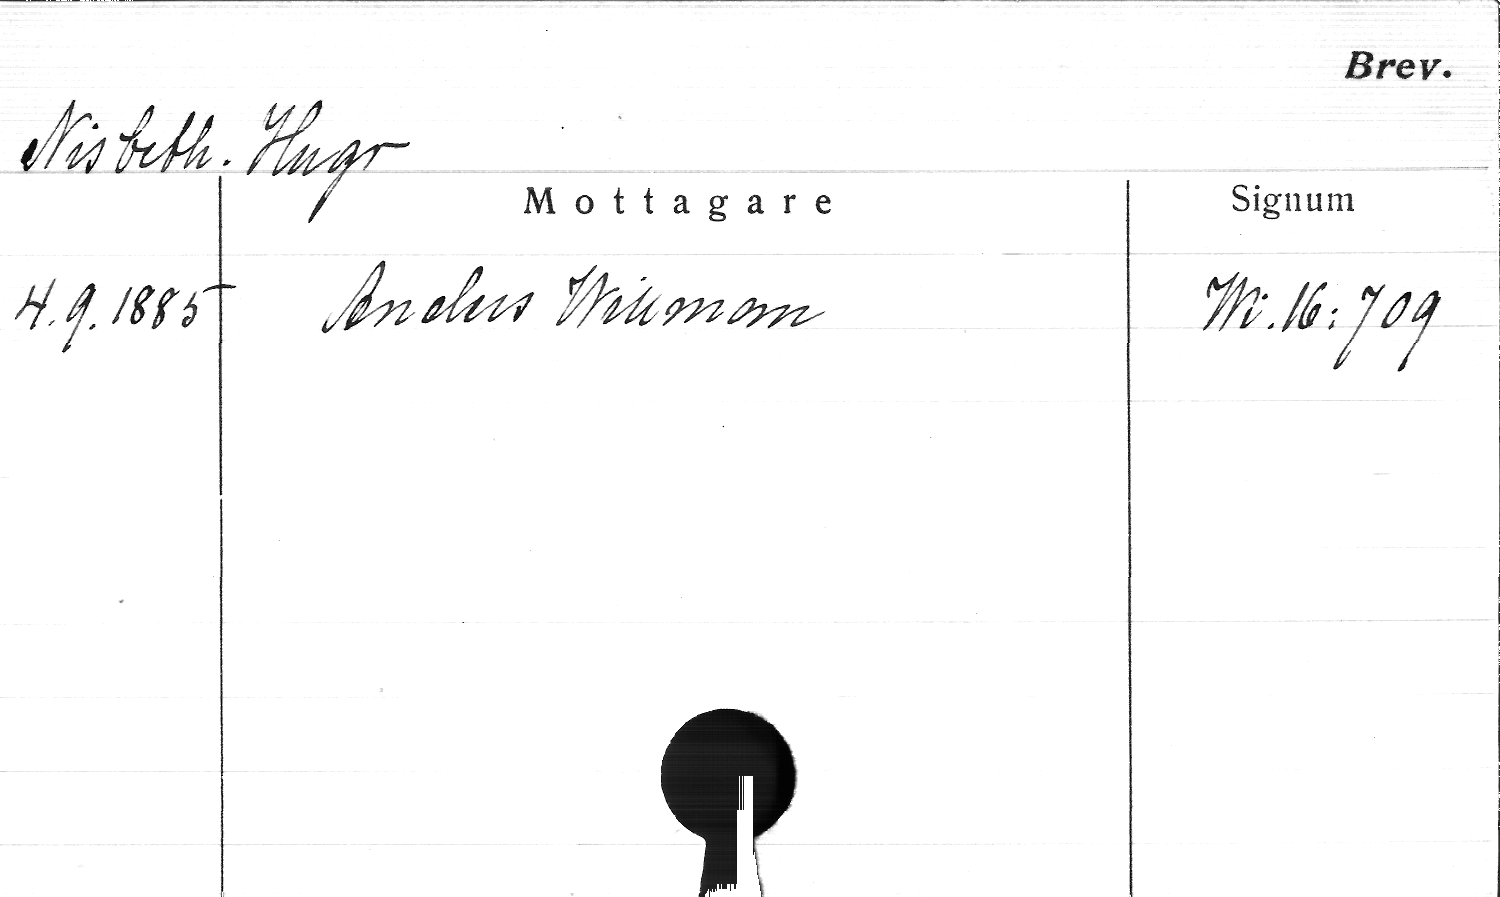 Brev.
Nisbeth. Hugo
Mottagare
Signum
4.9.1885 Anders Willman Wi.16:709